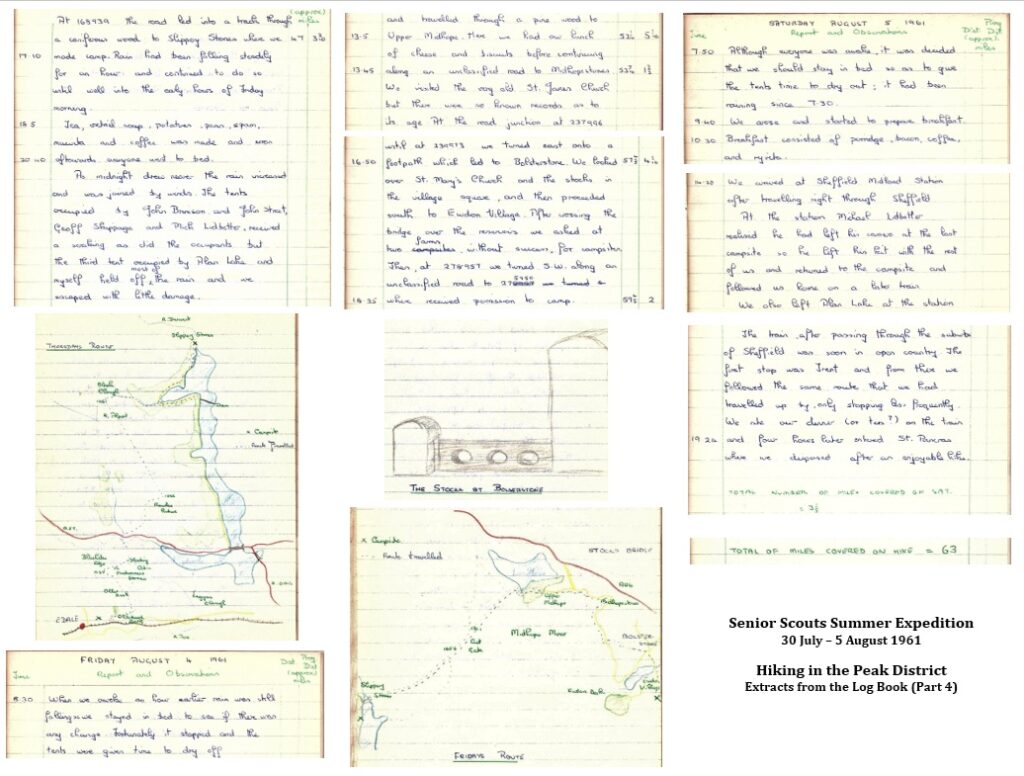 (approx)
miles
At 169939 the road led into a track through
a coniferous wood to Slippery Stones where we 47 3½
17.10 made camp. Rain had been falling steadily
for an hour and continued to do so
until well into the early hours of Friday
morning.
18.5 Tea, oxtail soup, potatoes, peas, spam,
and coffee was made and soon
20.40 afterwards everyone went to bed.
As midnight drew nearer the rain increased
and was joined by winds. The tents
occupied by John Brunson and John Street,
Geoff Sheppard and Mick Lidbetter, received
a soaking as did the occupants but
the third tent occupied by Alan Lake and
myself held off most of the rain and we
escaped with little damage.
THURSDAYS ROUTE
R. Derwent
Slippery Stones
x
x Campsite
Route Travelled
A57
EDALE
FRIDAY AUGUST 4 1961
Time Report and Observations Dist Prog Dist (approx) miles
8.30 When we awoke an hour earlier rain was still
falling so we stayed in bed to see if there was
any change. Fortunately it stopped and the
tents were given time to dry off
and travelled through a pine wood to
13.5 Upper Midhope. Here we had our lunch 52½ 5½
of cheese and biscuits before continuing
13.45 along an unclassified road to Midhopestones 53¾ 1¼
We visited the very old St. James Church
but there were no known records as to
its age. At the road junction at 237996
until at 230973 we turned east onto a
16.50 footpath which led to Bolsterstone. We looked 57½
over St. Mary's Church and the stocks in
the village square, and then proceeded
south to Ewden Village. After crossing the
bridge over the reservoirs we asked at
two campsites farms, without success, for campsites
Then, at 278957 we turned S.W. along an
unclassified road to
18.35 where received permission to camp. 59½ 2
THE STOCKS AT BOLSTERSTONE
x Campsite
Route travelled
STOCKSBRIDGE
Upper
Midhope
Midhopestones
Midhope Moor
BOLSTERSTONE
Slippery
Stones
Ewden
Village
FRIDAYS ROUTE
SATURDAY AUGUST 5 1961
Time Report and Observations Dist Prog Dist (approx) miles
7.50 Although everyone was awake, it was decided
that we should stay in bed so as to give
the tents time to dry out; it had been
raining since 7.30.
9.40 We arose and started to prepare breakfast.
10.30 Breakfast consisted of porridge, bacon, coffee,
and ryvita.
We arrived at Sheffield Midland Station
after travelling right through Sheffield
At the station Michael Lidbetter
realised he had left his camera at the last
campsite so he left his kit with the rest
of us and returned to the campsite and
followed us home on a later train.
We also left Alan Lake at the station
The train after passing through the suburbs
of Sheffield was soon in open country. The
first stop was Trent and from there we
followed the same route that we had
travelled up by, only stopping less frequently.
We ate our dinner (or tea?) on the train
19.20 and four hours later entered St. Pancras
where we dispersed after an enjoyable hike.
TOTAL NUMBER OF MILES COVERED ON SAT.
= 3½
TOTAL OF MILES COVERED ON HIKE = 63
Senior Scouts Summer Expedition
30 July – 5 August 1961
Hiking in the Peak District
Extracts from the Log Book (Part 4)